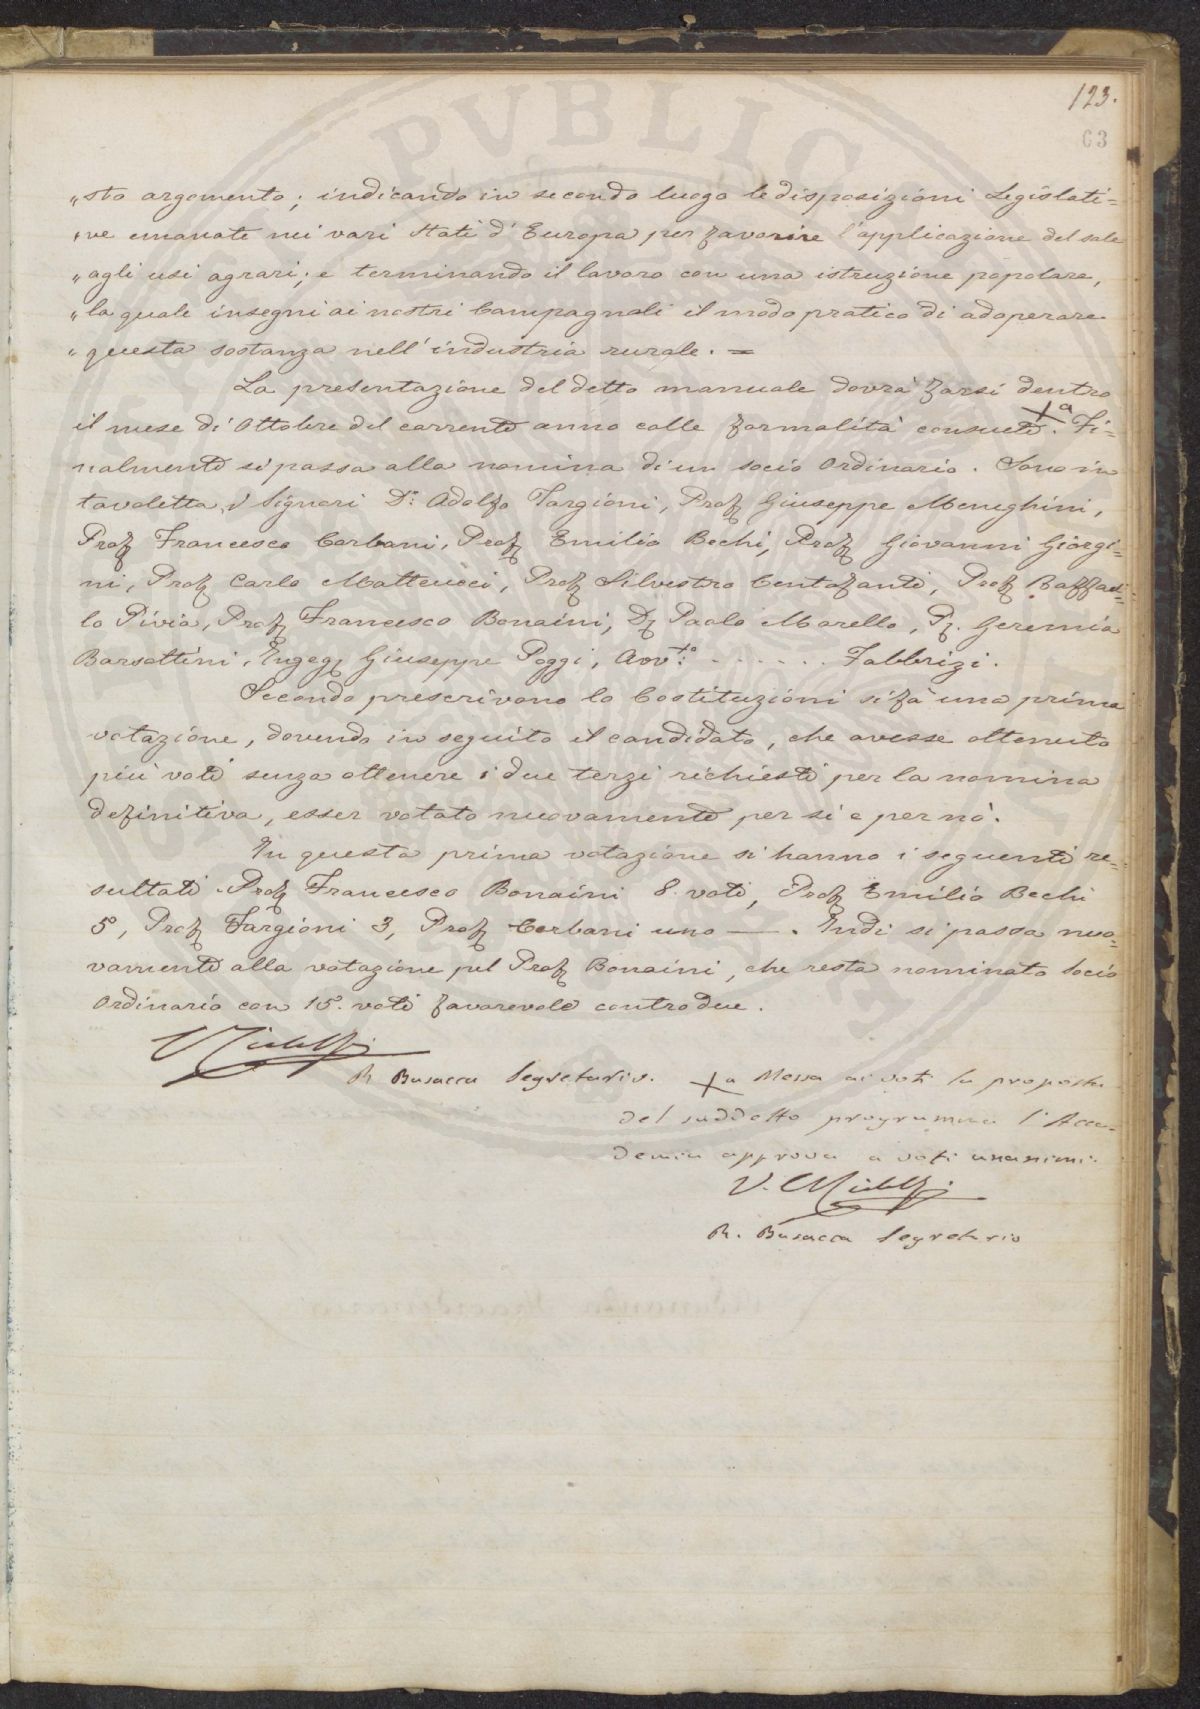 123.
63
„sto argomento; indicando in secondo luogo le disposizioni Legislati=
„ve emanate nei vari Stati d'Europa per favorire l'applicazione del sale
„agli usi agrari; e terminando il lavoro con una istruzione popolare,
„la quale insegni ai nostri Campagnoli il modo pratico di adoperare
„questa sostanza nell'industria rurale. =
La presentazione del detto manuale dovrà farsi dentro
il mese di Ottobre del corrente anno colle formalità consuete. Xa Fi=
nalmente si passa alla nomina di un socio Ordinario. Sono in
tavoletta i Signori Dr. Adolfo Targioni, Prof Giuseppe Meneghini,
Prof Francesco Corbani, Prof Emilio Bechi, Prof Giovanni Giorgi=
ni, Prof Carlo Matteucci, Prof Silvestro Centofanti, Prof Raffael=
lo Piria, Prof Francesco Bonaini, D Paolo Morello, P. Geremia
Barsottini, Ingeg Giuseppe Poggi, Avvto. . . . . . . Fabbrizi.
Secondo prescrivono le Costituzioni si fà una prima
votazione, dovendo in seguito il candidato, che avesse ottenuto
più voti senza ottenere i due terzi richiesti per la nomina
definitiva, esser votato nuovamente per sì e per nò.
In questa prima votazione si hanno i seguenti re=
sultati Prof Francesco Bonaini 8. voti, Prof Emilio Bechi
5, Prof Targioni 3, Prof Corbani uno —. Indi si passa nuo=
vamente alla votazione pel Prof Bonaini, che resta nominato Socio
Ordinario con 15. voti favorevole contro due.
V Ridolfi
R Busacca Segretario. Xa Messa ai voti la proposta
del suddetto programma l'Acca=
demia approva a voti unanimi.
V. CRidolfi
R. Busacca Segretario